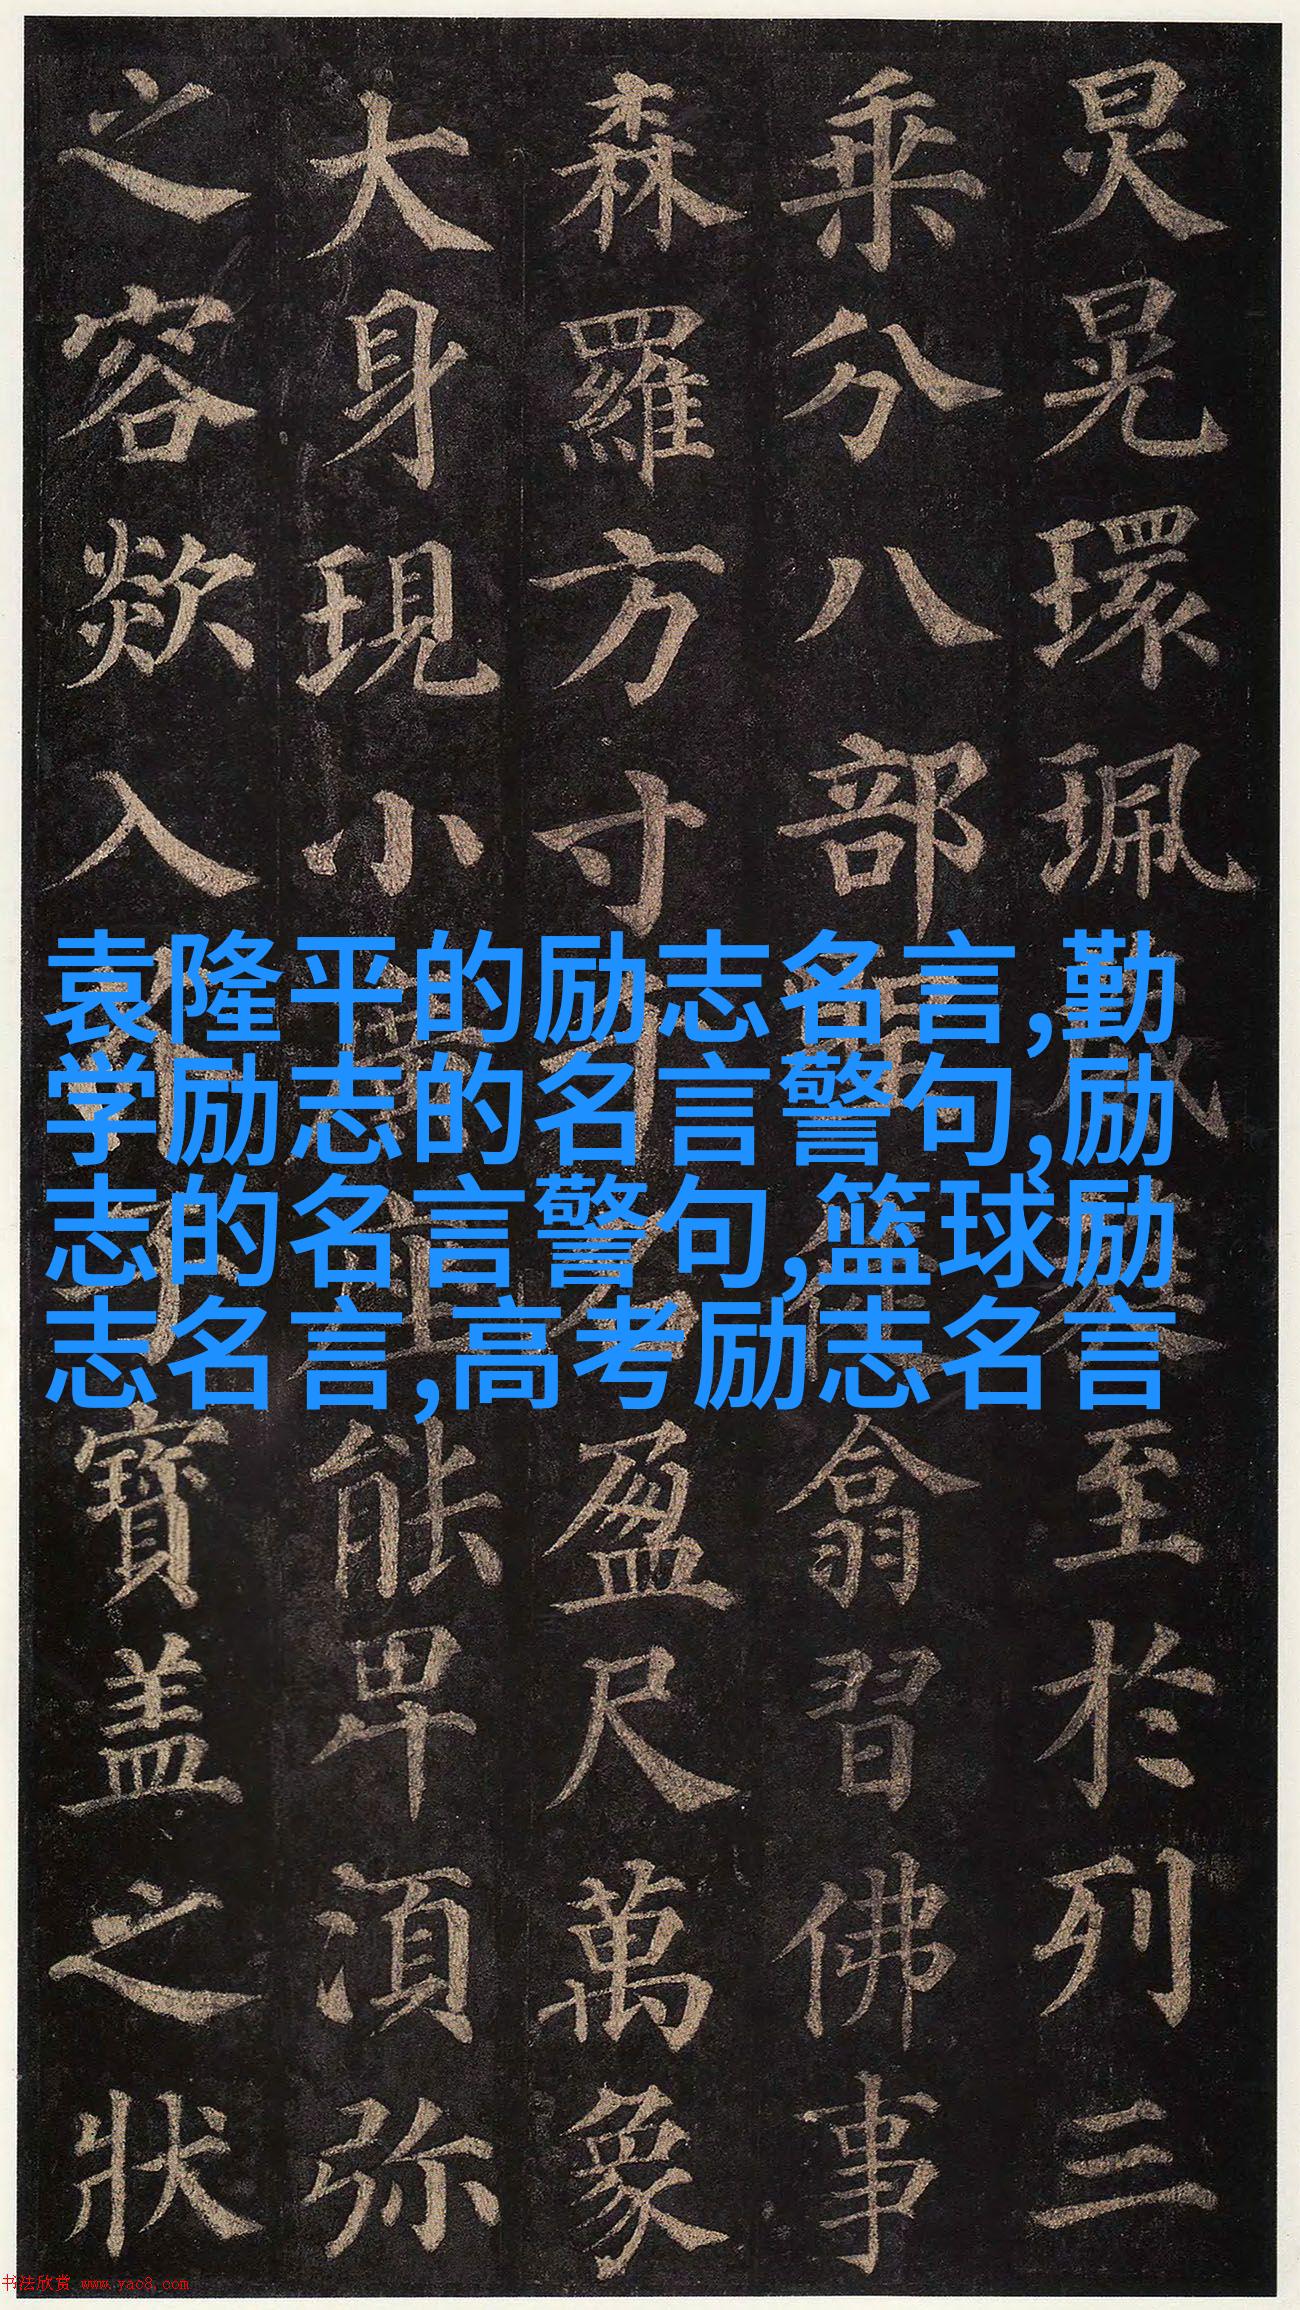 炅晃環珮至於列三
乘分八部翕習佛事
森羅方寸盈尺萬象
大身現小能卑湏弥
之容欻入寶盖之狀
袁隆平的励志名言,勤
学励志的名言警句,励
志的名言警句,篮球励
志名言,高考励志名言
书法欣赏 www.yac8.com